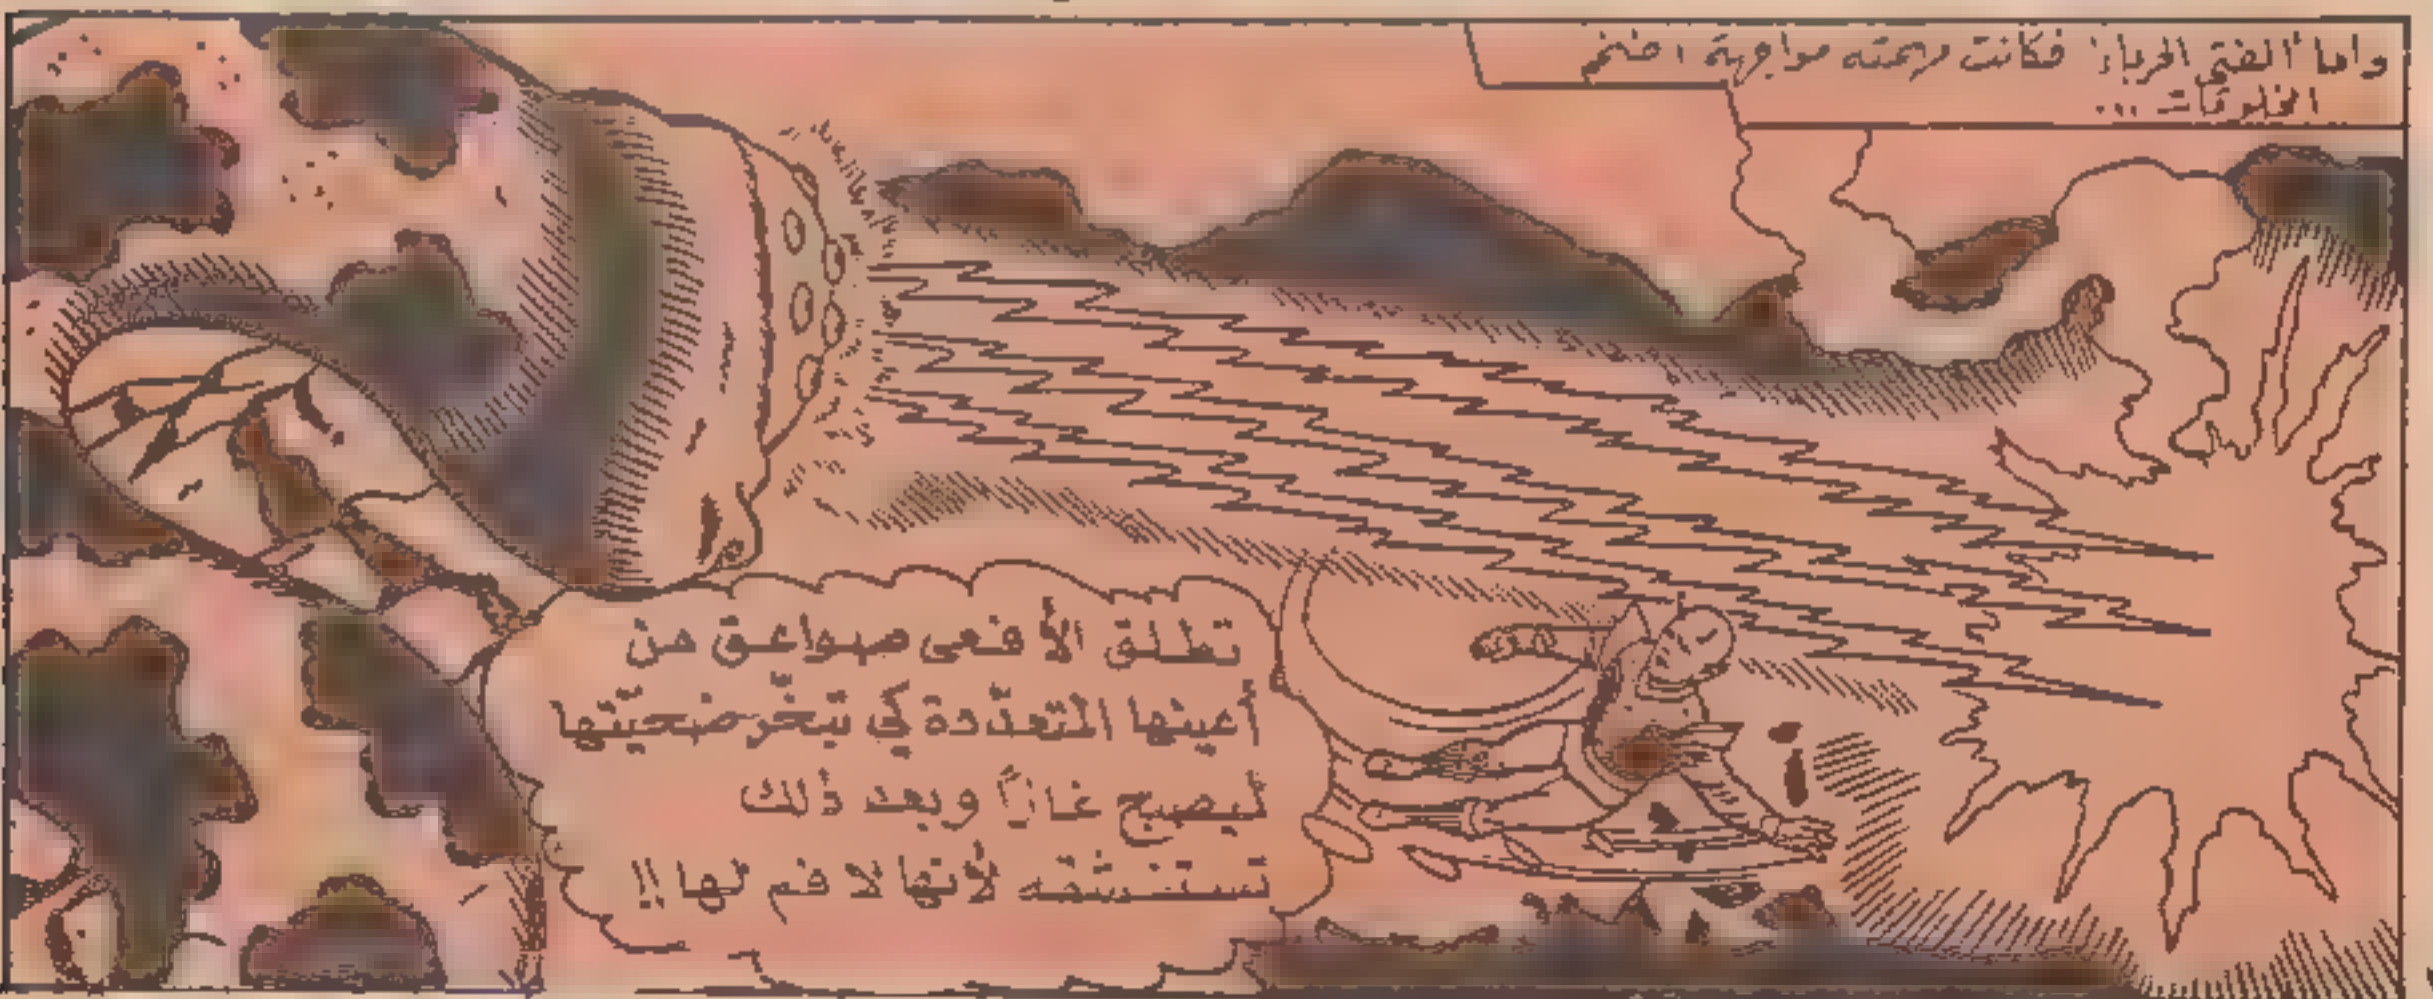 واما "الفتى الحرباء" فكانت مهمته مواجهة اضخم
المخلوقات ...
تطلق الأفعى صواعق من
أعينها المتعددة كي تبخّر ضحيّتها
ليصبح غازاً وبعد ذلك
تستنشقه لأنها لا فم لها !!